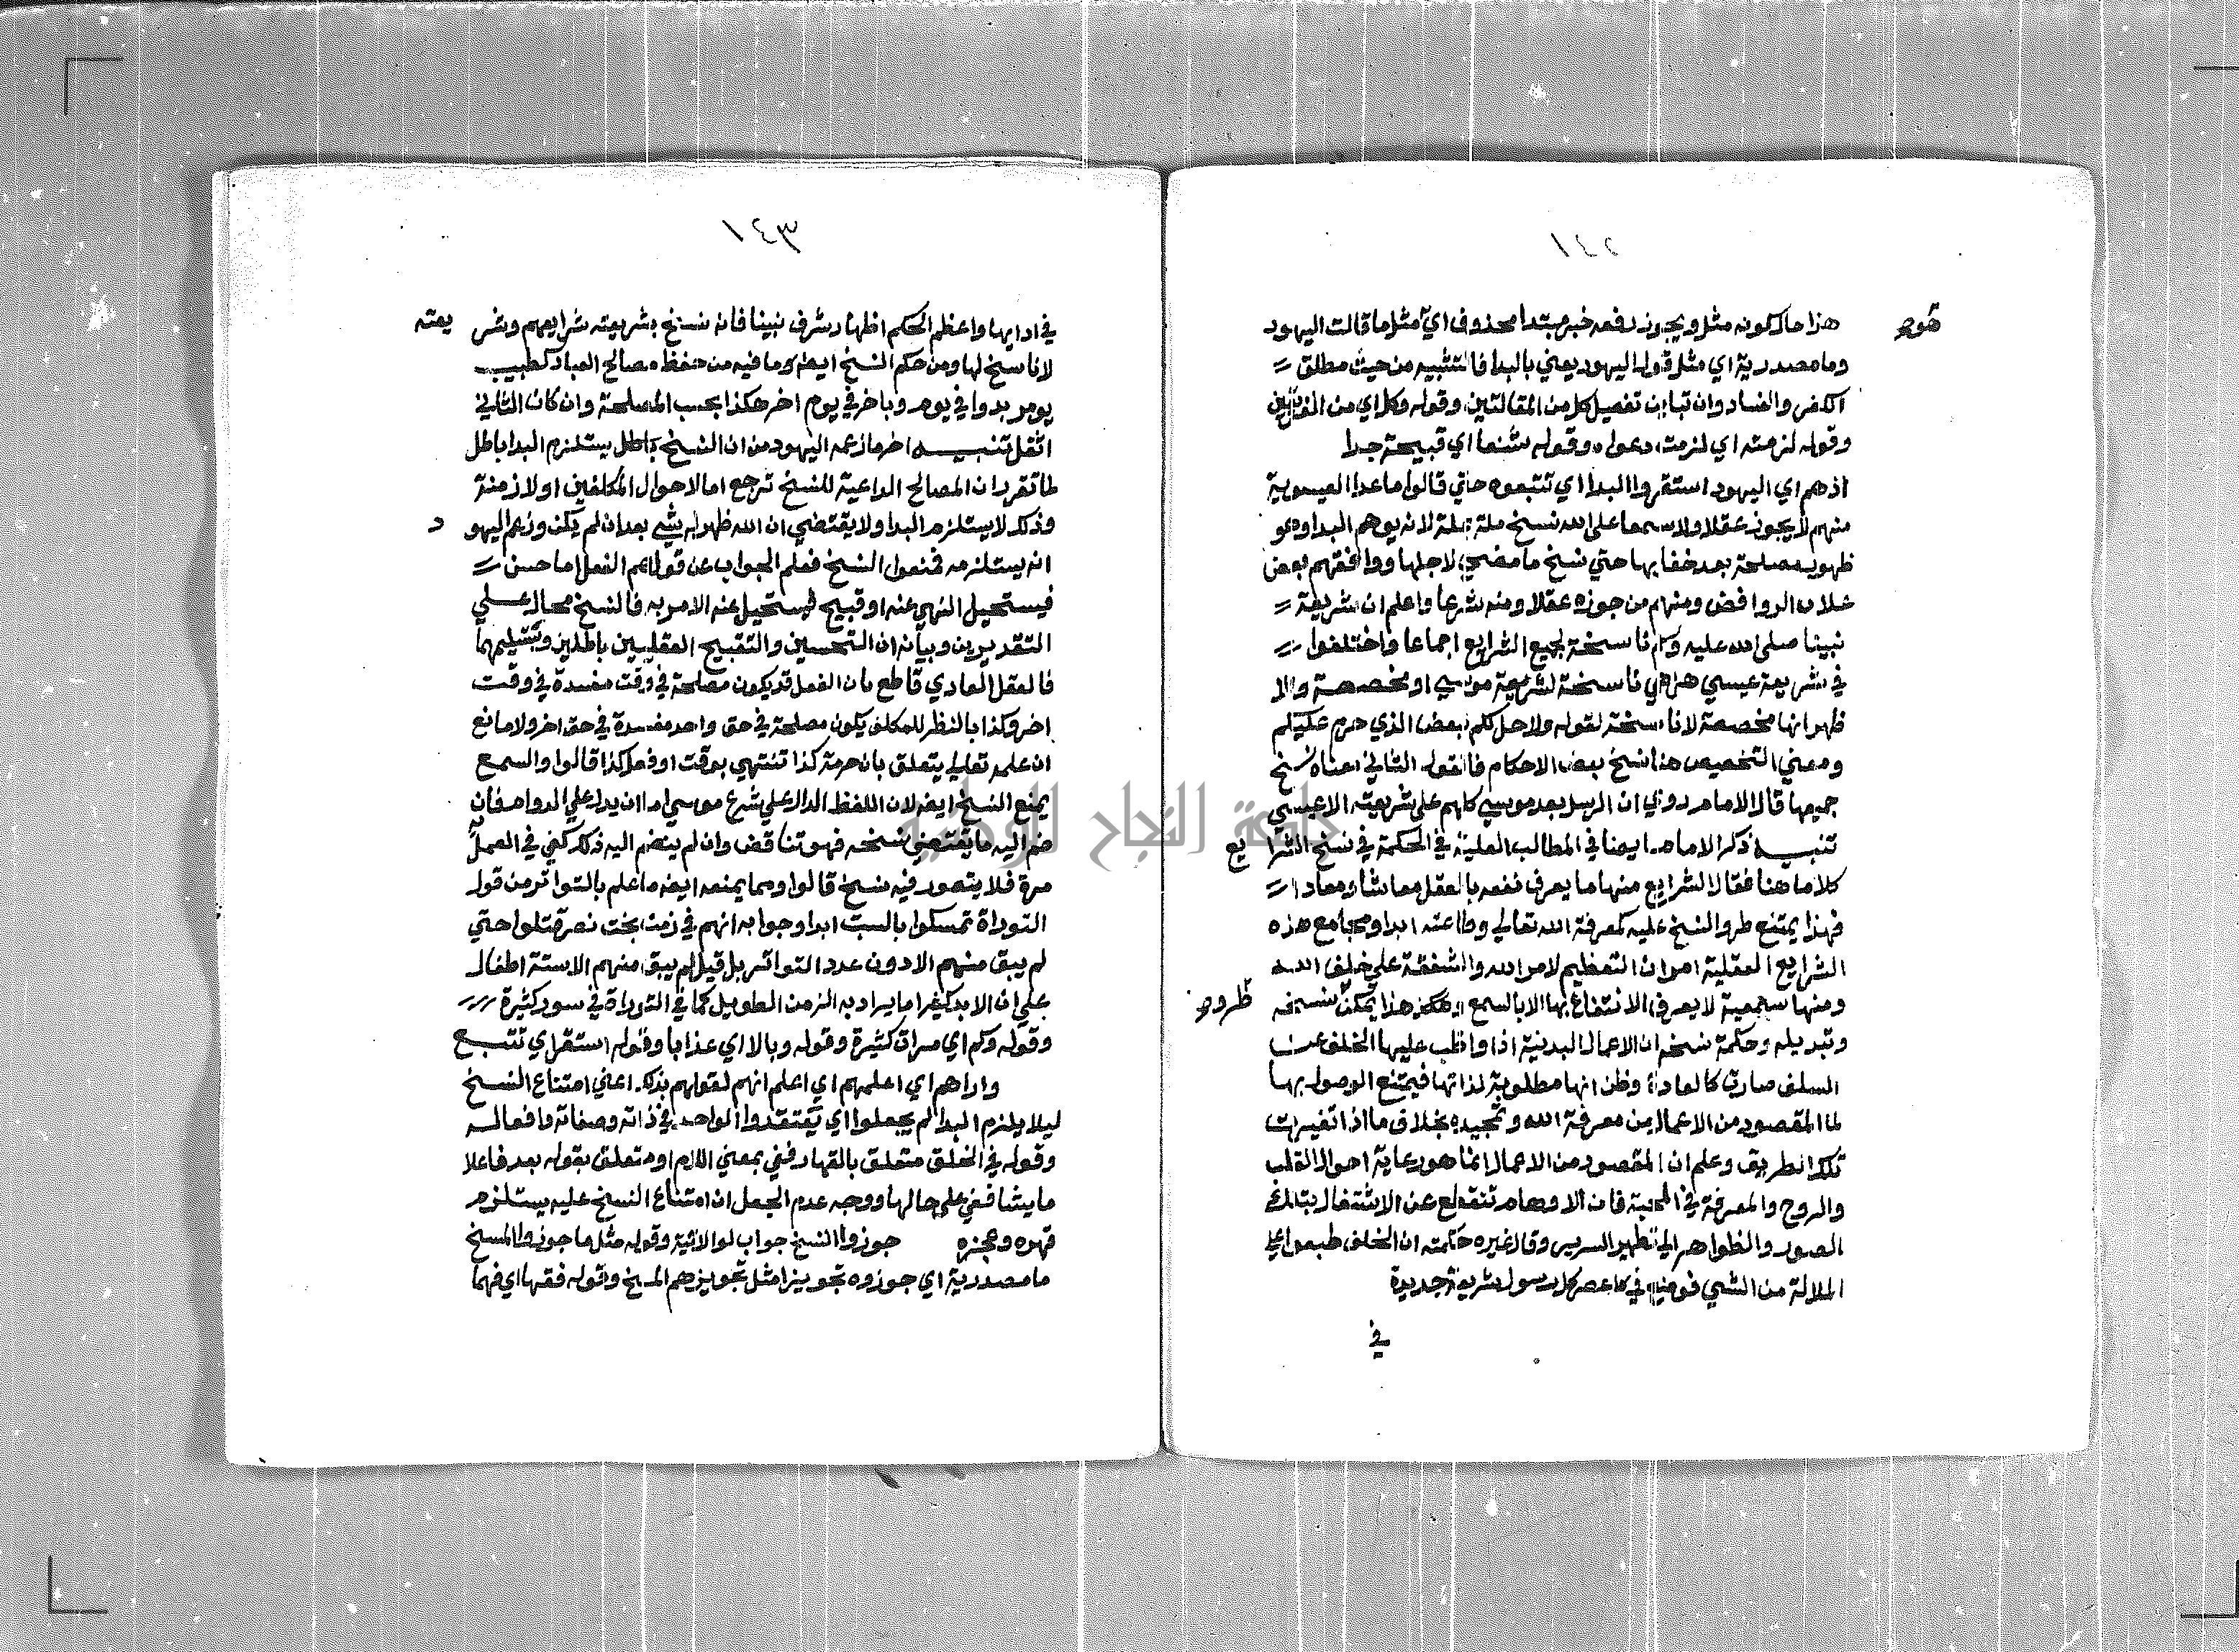 ١٤٢
قوله هذا حال كونه مثل ويجوز رفعه خبر مبتدا محذوف اي مثل ما قالت اليهود
وما مصدرية اي مثل قول اليهود يعني بالبدا فالتشبيه من حيث مطلق
الكفر والفساد وان تباين تفصيل كل من المقالتين وقوله وكل اي من الفريقين
وقوله لزمته اي لزمت دعواه وقوله شنعا اي قبيحة جدا
اذ هم اي اليهود استقروا البدا اي تتبعوه حتي قالوا ما عدا العيسوية
منهم لا يجوز عقلا ولا سمعا علي الله نسخ ملة بملة لانه يوهم البدا وهو
ظهور مصلحة بعد خفايها حتي نسخ ما مضي لاجلها ووافقهم بعض
غلاة الروافض ومنهم من جوزه عقلا ومنه شرعا واعلم ان شريعة
نبينا صلي الله عليه وسلم ناسخة لجميع الشرايع اجماعا واختلفوا
في شريعة عيسي هل هي ناسخة لشريعة موسي او مخصصة والا
ظهر انها مخصصة لا ناسخة لقوله ولاحل لكم بعض الذي حرم عليكم
ومعني التخصيص هنا نسخ بعض الاحكام فالقول الثاني معناه نسخ
جميعها قال الامام روي ان الرسل بعد موسي كلهم علي شريعته الا عيسي
تنبيه ذكر الامام ايضا في المطالب العلية في الحكمة في نسخ الشرايع
كلاما هنا فقال الشرايع منها ما يعرف نفعه بالعقل معاشا ومعادا
فهذا يمتنع طرو النسخ عليه كمعرفة الله تعالي وطاعته ابدا ومجامع هذه
الشرايع العقلية امران التعظيم لامر الله والشفقة علي خلق الله
ومنها سمعية لا يعرف الانتفاع بها الا بالسمع وهذا يمكن نسخه
وتبديله وحكمة نسخه ان الاعمال البدنية اذا واظب عليها الخلف عن
السلف صارت كالعادة وظن انها مطلوبة لذاتها فيمتنع الوصول بها
لما المقصود من الاعمال من معرفة الله وتمجيده بخلاف ما اذا تغيرت
تلك الطريق وعلم ان المقصود من الاعمال انما هو رعاية احوال القلب
والروح والمعرفة في المحبة فان الاوهام تنقطع عن الاشتغال بتلك
الصور والظواهر الي تطهير السرير وقال غيره حكمته ان الخلف طبعوا علي
الملالة من الشي في كل عصر كل رسول بشريعة جديدة
في
١٤٣
في ادايها واعظم الحكم اظهار شرف نبينا فانه نسخ بشريعته شرايعهم وشريعته
لا ناسخ لها ومن حكم النسخ ايضا وما فيه من حفظ مصالح العباد كطبيب
يومر بدوا في يوم وباخر في يوم اخر هكذا بحسب المصلحة وان كان الثاني
اثقل تنبيه اخر ما زعمه اليهود من ان النسخ باطل يستلزم البدا باطل
لما تقرر ان المصالح الداعية للنسخ ترجع اما لاحوال المكلفين او لازمنة
وذلك لا يستلزم البدا ولا يقتضي ان الله ظهر له شي بعد ان لم يكن وزعم اليهود
انه يستلزمه فمنعوا النسخ فعلم الجواب عن قولهم الفعل اما حسن
فيستحيل النهي عنه او قبيح فيستحيل عنه الامر به فالنسخ محال علي
التقديرين وبيانه ان التحسين والتقبيح العقليين باطلين وبتسليمهما
فالعقل العادي قاطع بان الفعل قد يكون مصلحة في وقت مفسدة في وقت
اخر وكذا بالنظر للمكلف يكون مصلحة في حق واحد مفسدة في حق اخر ولا مانع
ان علمه تعالي يتعلق بان حرمة كذا تنتهي بوقت او فعل كذا قالوا والسمع
يمنع النسخ ايضا لان اللفظ الدال علي شرع موسي اما ان يدل علي الدوام فان
ضم اليه ما يقتضي نسخه فهو تناقض وان لم ينضم اليه ذلك كفي في العمل به
مرة فلا يتصور فيه نسخ قالوا ومما يمنعه ايضا ما علم بالتواتر من قول
التوراة تمسكوا بالسبت ابدا وجوابه انهم في زمن بخت نصر قتلوا حتي
لم يبق منهم الا دون عدد التواتر بل قيل لم يبق منهم الا ستة اطفال
علي ان الابد كثيرا ما يراد به الزمن الطويل كما في التوراة في سور كثيرة
وقوله وكم اي مرات كثيرة وقوله وبالا اي عذابا وقوله استقراي تتبع
واراهم اي اعلمهم اي اعلم انهم لقولهم بذلك اعني امتناع النسخ
ليلا يلزم البدا لم يجعلوا اي يعتقدوا الواحد في ذاته وصفاته وافعاله
وقوله في الخلق متعلق بالقهار ففي بمعني اللام او متعلق بقوله بعد فاعلا
ما يشا ففي علي حالها ووجه عدم الجعل ان امتناع النسخ عليه يستلزم
قهره وعجزه جوزوا النسخ جواب لو الاتية وقوله مثل ما جوزوا المسخ
ما مصدرية اي جوزوه تجويزا مثل تجويزهم المسخ وقوله فقها اي فهما
جامعة النجاح الوطنية